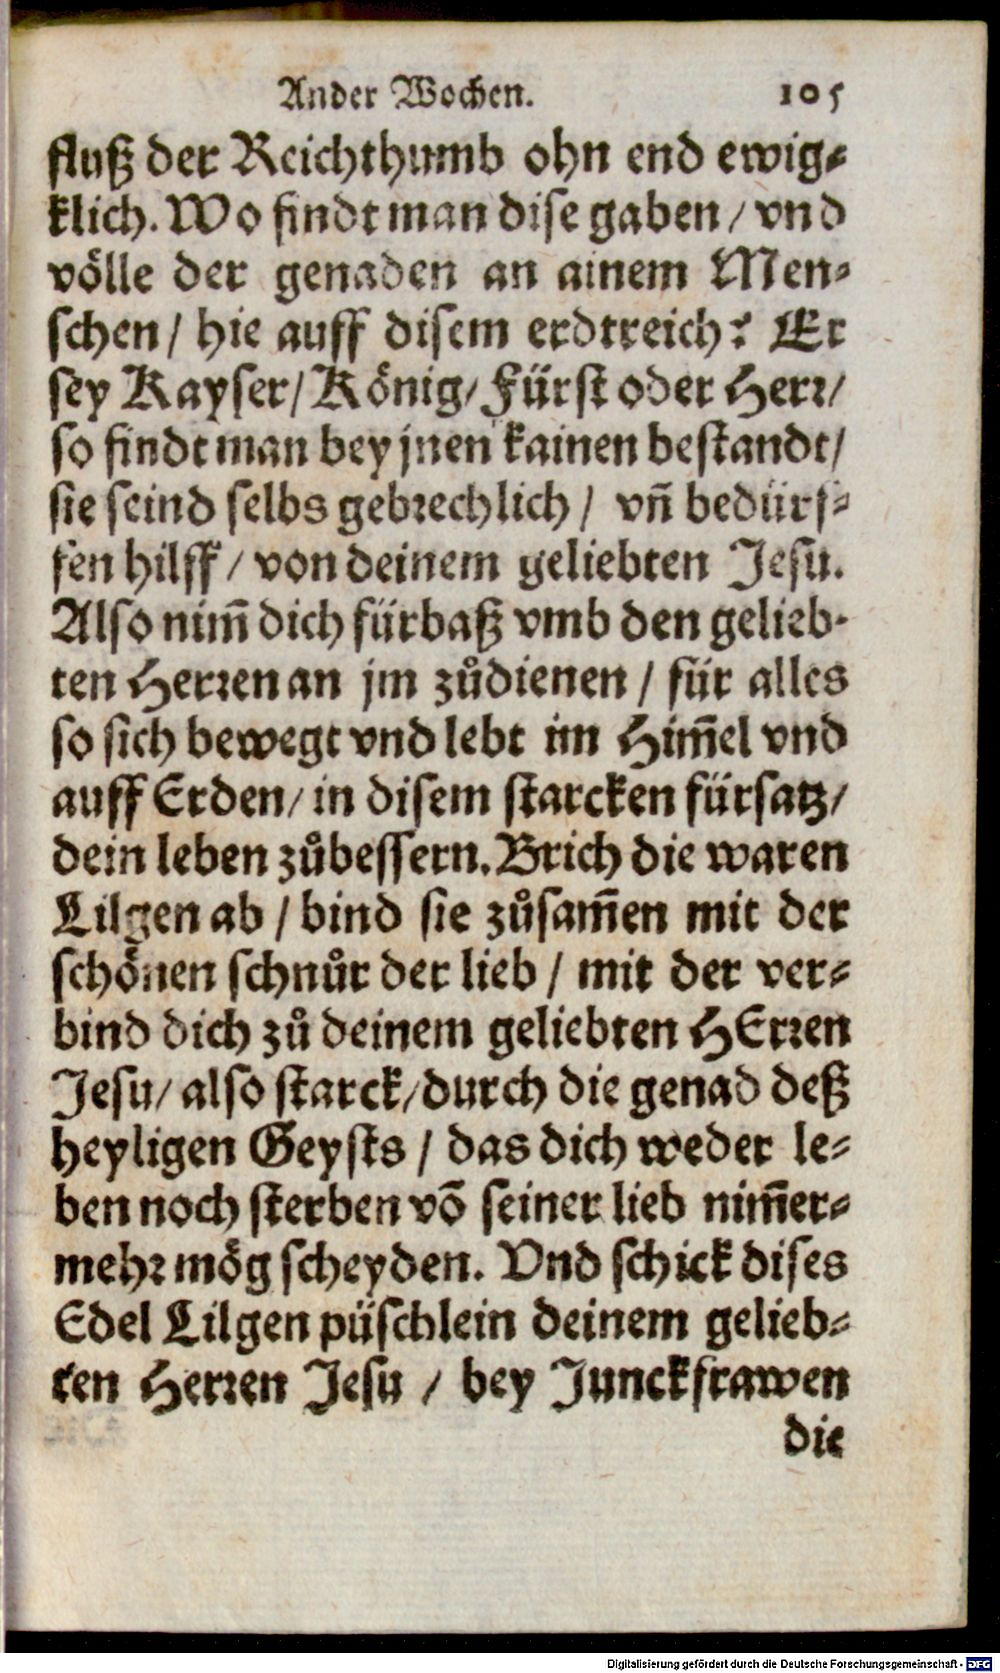 Ander Wochen. 105
fluß der Reichthumb ohn end ewig⸗
klich. Wo findt man dise gaben / vnd
völle der genaden an ainem Men⸗
schen / hie auff disem erdtreich? Er
sey Kayser / König / Fürst oder Herr /
so findt man bey jnen kainen bestandt /
sie seind selbs gebrechlich / vñ bedürf⸗
fen hilff / von deinem geliebten Jesu.
Also nim̃ dich fürbaß vmb den gelieb⸗
ten Herren an jm zůdienen / für alles
so sich bewegt vnd lebt im Him̃el vnd
auff Erden / in disem starcken fürsatz /
dein leben zůbessern. Brich die waren
Lilgen ab / bind sie zůsam̃en mit der
schönen schnůr der lieb / mit der ver⸗
bind dich zů deinem geliebten HErren
Jesu / also starck / durch die genad deß
heyligen Geysts / das dich weder le⸗
ben noch sterben võ seiner lieb nim̃er⸗
mehr mög scheyden. Vnd schick dises
Edel Lilgen püschlein deinem gelieb⸗
ten Herren Jesu / bey Junckfrawen
die
Digitalisierung gefördert durch die Deutsche Forschungsgemeinschaft - DFG